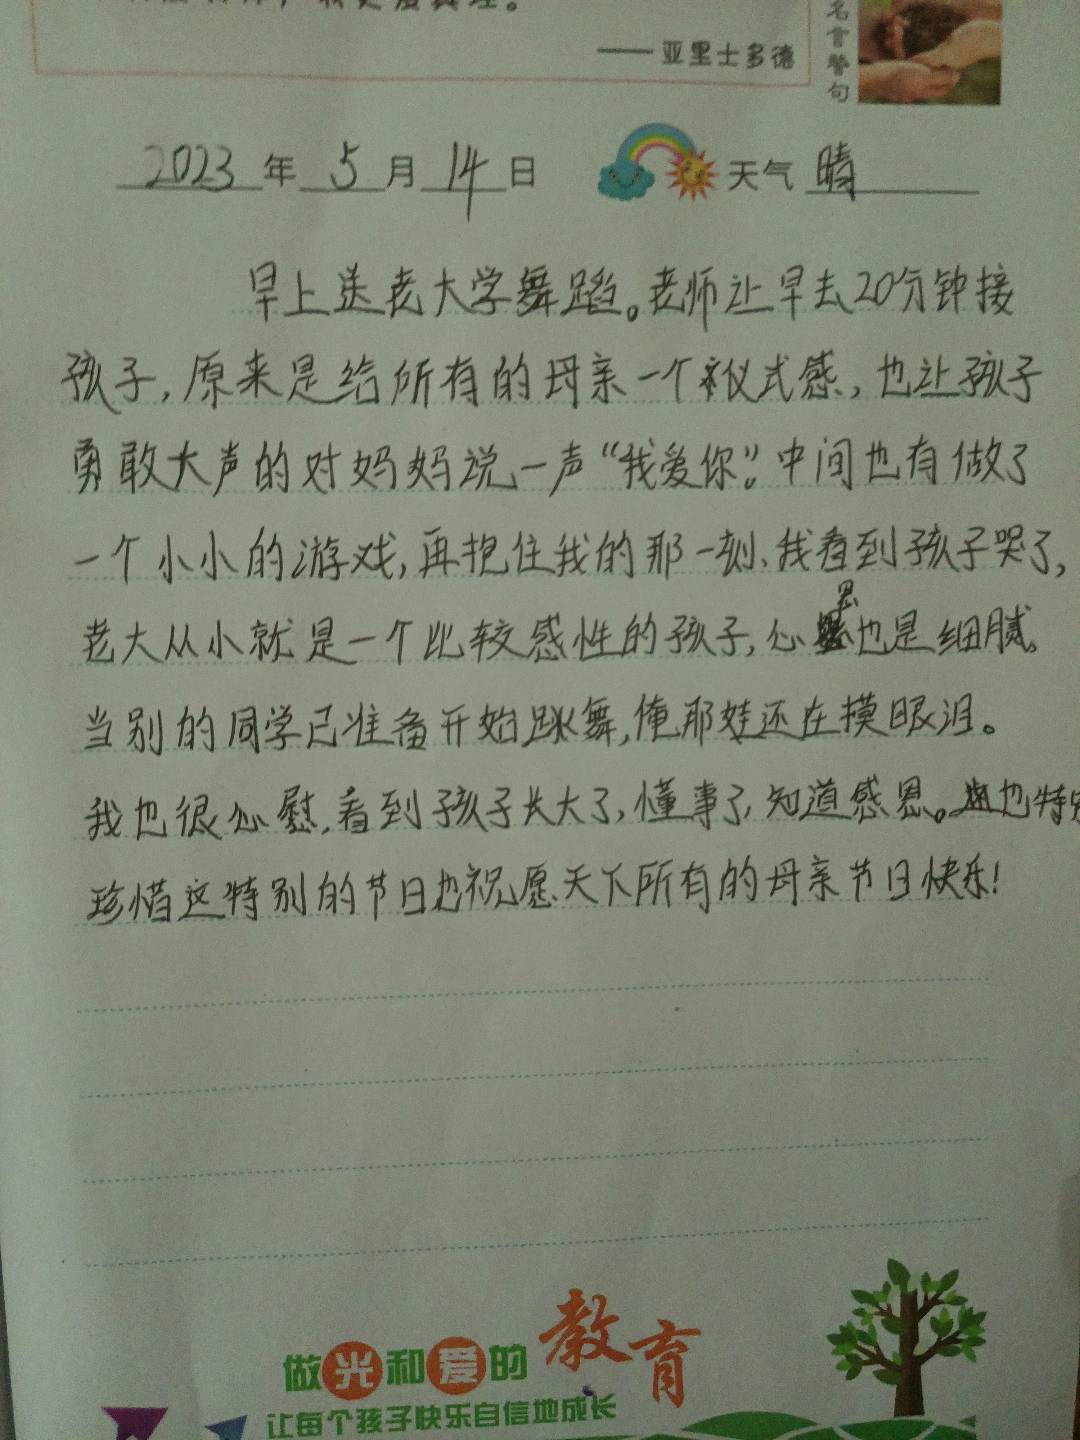 我更爱真理。
——亚里士多德
名言警句
2023年5月14日 天气 晴
早上送老大学舞蹈。老师让早去20分钟接
孩子,原来是给所有的母亲一个仪式感,也让孩子
勇敢大声的对妈妈说一声“我爱你”。中间也有做了
一个小小的游戏,再抱住我的那一刻、我看到孩子哭了,
老大从小就是一个比较感性的孩子,心思也是细腻。
当别的同学已准备开始跳舞,俺那娃还在摸眼泪。
我也很心慰,看到孩子长大了,懂事了,知道感恩。也特别
珍惜这特别的节日也祝愿天下所有的母亲节日快乐!
做光和爱的教育
让每个孩子快乐自信地成长